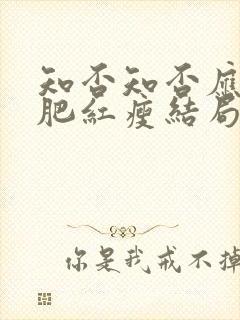 知否知否应
肥红瘦结局
你是我戒不掉